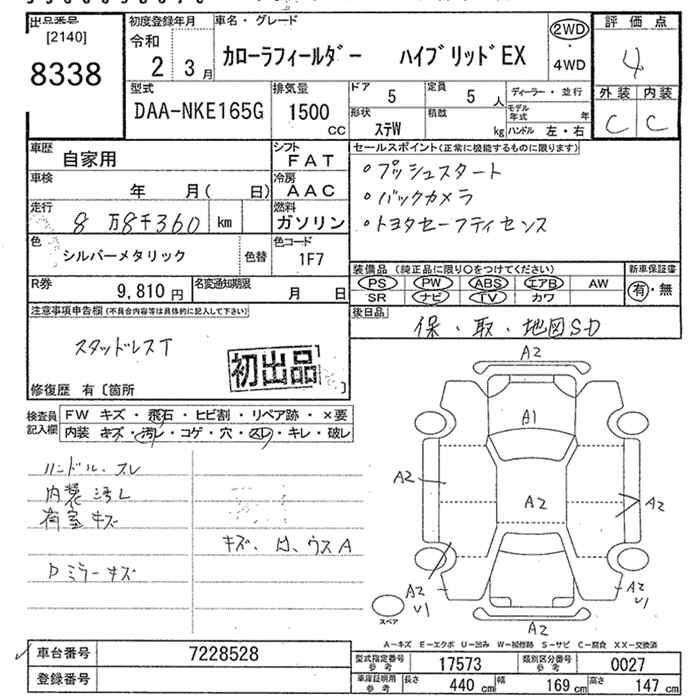 出品番号 [2140] 8338
初度登録年月 令和 2年 3月
車名・グレード カローラフィールダー ハイブリッドEX
2WD・4WD
評価点 4
外装 C 内装 C
型式 DAA-NKE165G
排気量 1500 CC
ドア 5 定員 5 人
形状 ステW 積載 kg
ディーラー・並行
モデル年式 年
ハンドル 左・右
車歴 自家用
シフト FAT
車検 年 月( 日)
冷房 AAC
走行 8万8千360 km
燃料 ガソリン
色 シルバーメタリック 色替
色コード 1F7
R券 9,810円
名変通知期限 月 日
セールスポイント(正常に機能するものに限ります)
・プッシュスタート
・バックカメラ
・トヨタセーフティセンス
装備品 (純正品に限り○をつけてください)
PS PW ABS エアB AW
SR ナビ TV カワ
新車保証書 有・無
後日品 保・取・地図SD
注意事項申告欄(不具合内容等は具体的に記入して下さい)
スタッドレスT
初出品
修復歴 有〔箇所 〕
検査員記入欄
FW キズ・飛石・ヒビ割・リペア跡・×要
内装 キズ・汚レ・コゲ・穴・スレ・キレ・破レ
ハンドル・スレ
内装汚レ
荷室キズ
キズ、凹、ウスA
Dミラーキズ
A2
A1
A2
A2
A2
A2
U1
A2
U1
A2
スペア
A-キズ E-エクボ U-凹み W-補修跡 S-サビ C-腐食 XX-交換済
車台番号 7228528
登録番号
型式指定番号参考 17573 類別区分番号参考 0027
車庫証明用参考 長さ 440 cm 幅 169 cm 高さ 147 cm